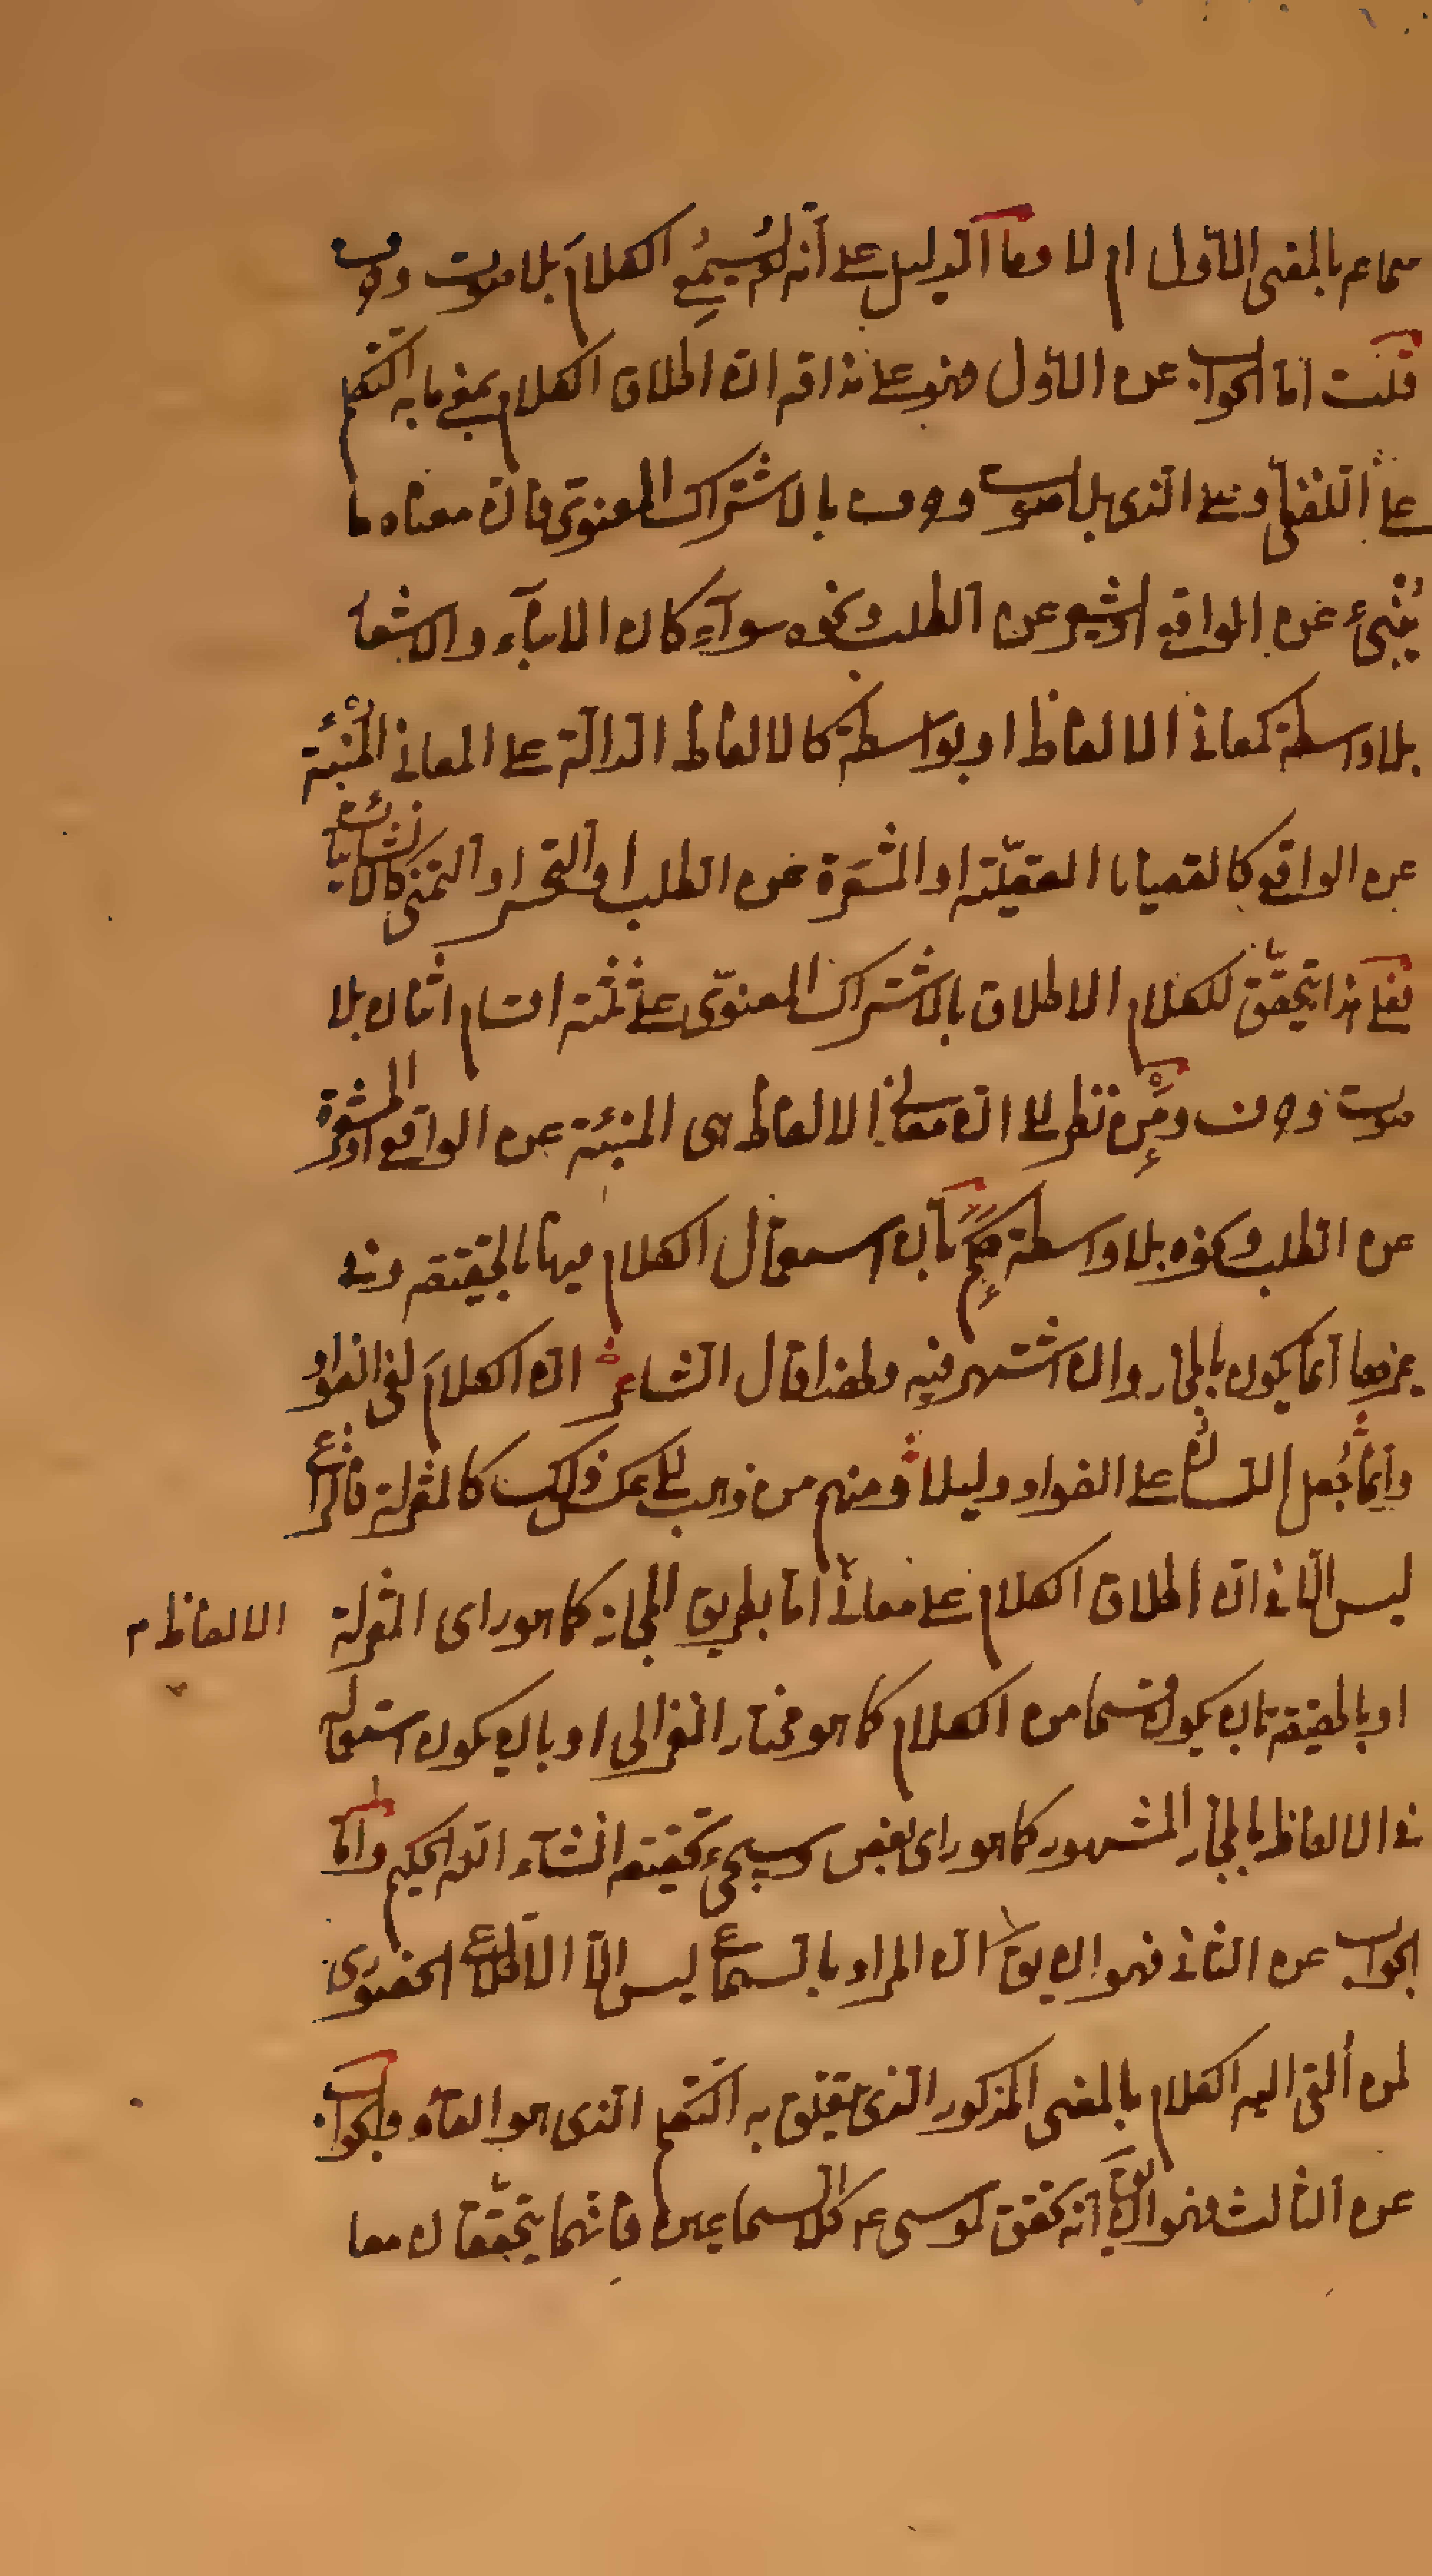 سماعه بالمعنى الأول ام لا وما الدليل على أنه لم يسمع الكلام بلا صوت وحرف
قلت اما الجواب عن الأول فهو على مذاقه ان اطلاق الكلام بمعنى ما به التكلم
على اللفظى وعلى الذى بلا صوت وحرف بالاشتراك المعنوى فان معناه ما
يُنبئ عن الواقع او يشعر عن الطلب ونحوه سوآء كان الانباء والاشعار
بلا واسطة كمعانى الالفاظ او بواسطة كالالفاظ الدالة على المعانى المُنبئة
عن الواقع كالقضايا العقليّة او المشعرة عن الطلب او التحسر او التمنى كالانشائيات
فعلى هذا يتحقّق للكلام الاطلاق بالاشتراك المعنوىّ على ثلثة اقسام اثنان بلا
صوت وحرف ومَن نظر الى ان معانى الالفاظ هى المنبئة عن الواقع او المشعرة
عن الطلب ونحوه بلا واسطة حكم بأن استعمال الكلام فيها بالحقيقة وفى
غيرها انما يكون بالمجاز وان اشتهر فيه ولهذا قال الشاعر ان الكلامَ لفى الفؤاد
وانما جُعل اللسان على الفواد دليلا ومنهم من ذهب الى عكس ذلك كالمعتزلة فالنزاع
ليس الّا فى ان اطلاق الكلام على معانى الالفاظ اما بطريق المجاز كما هو راى المعتزلة
او بالحقيقة بان يكون قسما من الكلام كما هو مختار الغزالى او بان يكون استعماله
فى الالفاظ بالمجاز المشهور كما هو راى بعض وسيجئ تحقيقه انشآء الله الحكيم واما
الجواب عن الثانى فهو ان يق ان المراد بالسماع ليس الّا الاطلاع الحضورى
لمن أُلقى اليه الكلام بالمعنى المذكور الذى يتعلق به التكلم الذى هو القاؤه والجواب
عن الثالث فهو ان يق انه تحقق لموسى عم كلا السماعين فانهما يتحققان معا